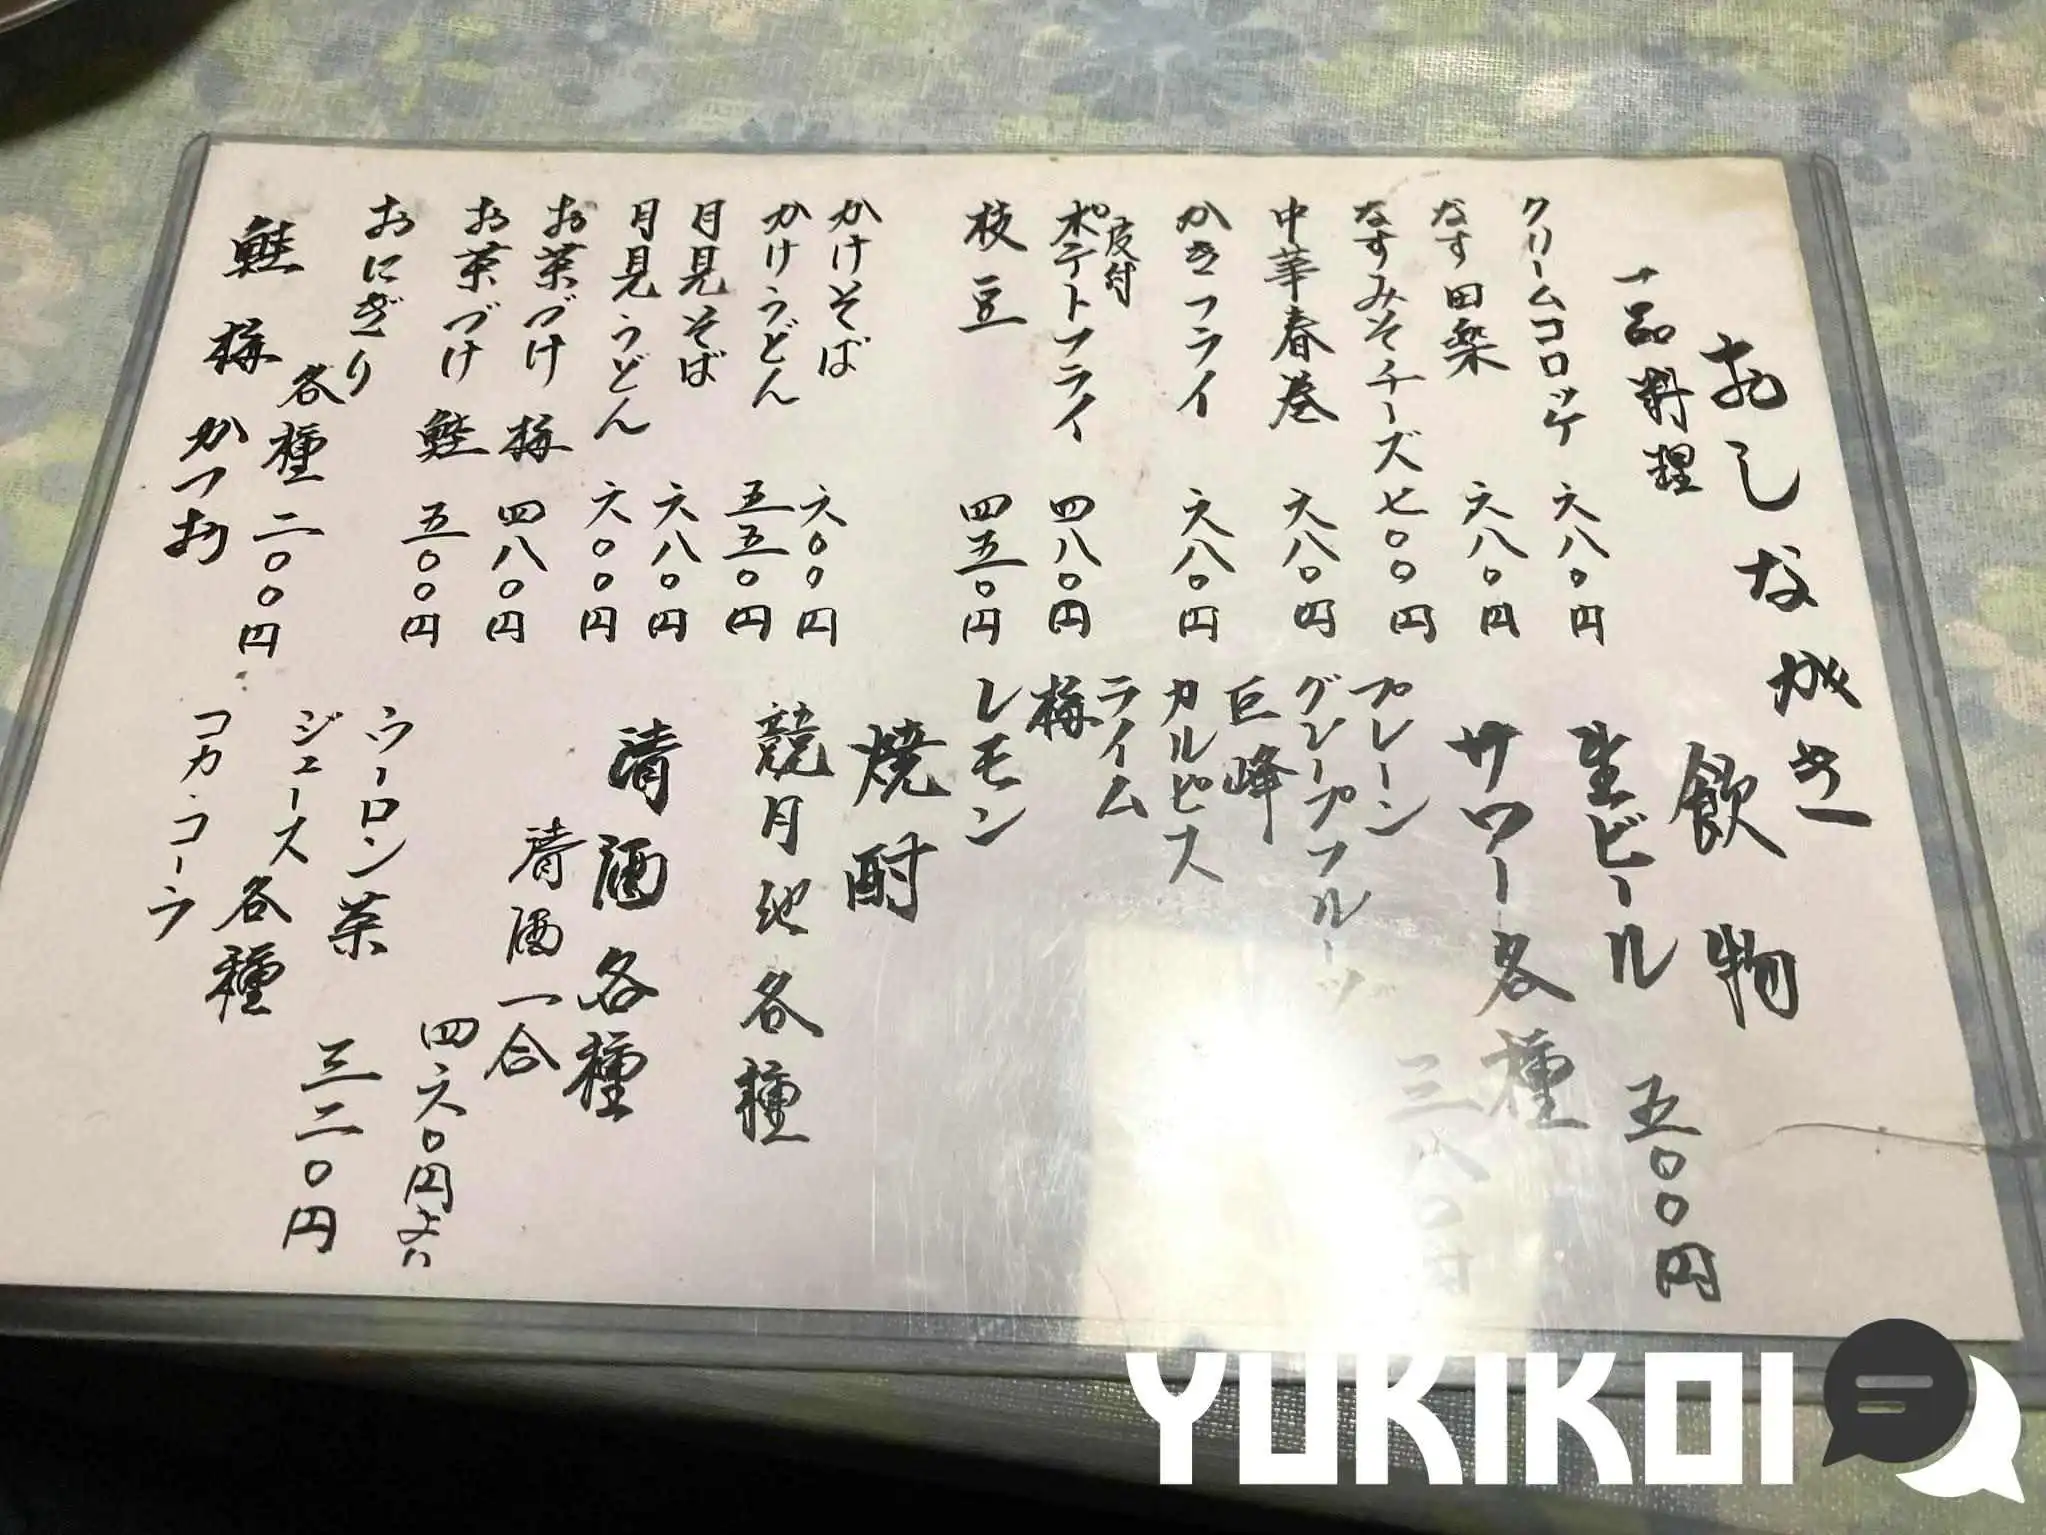 おしながき
一品料理
クリームコロッケ 六八〇円
なす田楽 六八〇円
なすみそチーズ 七〇〇円
中華春巻 六八〇円
かきフライ 六八〇円
皮付
ポテトフライ 四八〇円
枝豆 四五〇円
かけそば 六〇〇円
かけうどん 五五〇円
月見そば 六八〇円
月見うどん 六〇〇円
お茶づけ 梅 四八〇円
お茶づけ 鮭 五〇〇円
おにぎり 各種 二〇〇円
鮭 梅 かつお
飲物
生ビール 五〇〇円
サワー各種 三八〇円
プレーン
グレープフルーツ
巨峰
カルピス
ライム
梅
レモン
焼酎
競月池各種
清酒各種
清酒一合 四六〇円より
ウーロン茶
ジュース各種 三二〇円
コカ・コーラ
YUKIKOI